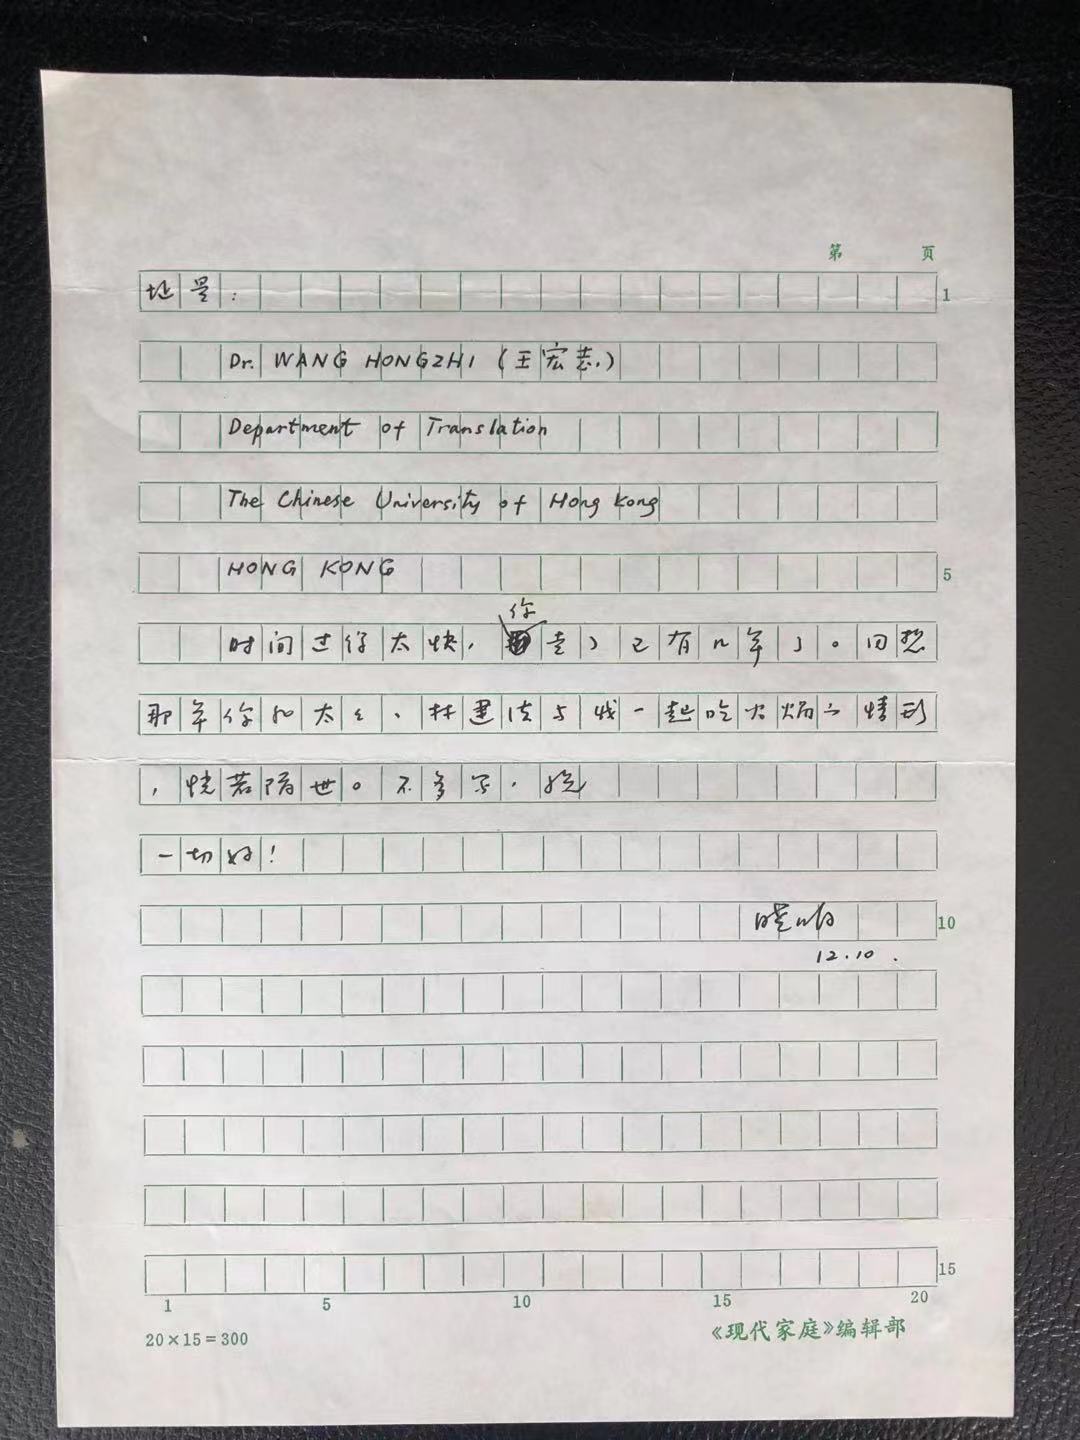 第 页
地是：
1
Dr. WANG HONGZHI (王宏志)
Department of Translation
The Chinese University of Hong Kong
HONG KONG
5
你
时间过得太快，走了已有几年了。回想
那年你和太太、林建法与我一起吃火锅的情形
，恍若隔世。不多写，祝
一切好！
10
12.10.
15
1 5 10 15 20
20×15=300
《现代家庭》编辑部